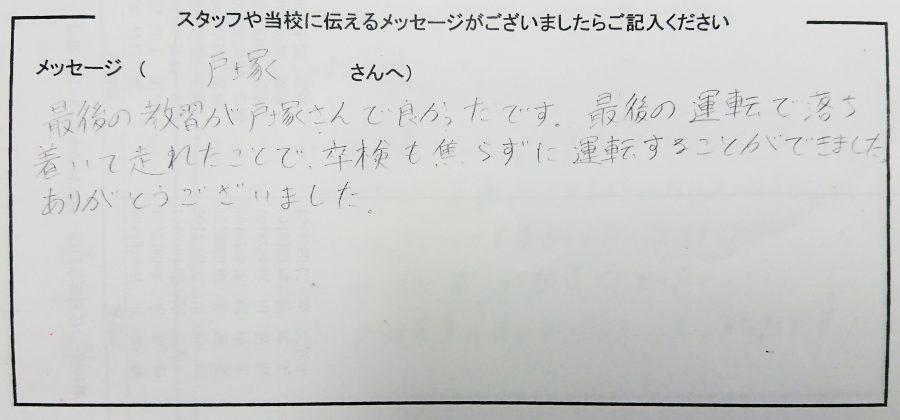 スタッフや当校に伝えるメッセージがございましたらご記入ください
メッセージ ( 戸塚 さんへ)
最後の教習が戸塚さんで良かったです。最後の運転で落ち
着いて走れたことで、卒検も焦らずに運転することができました。
ありがとうございました。